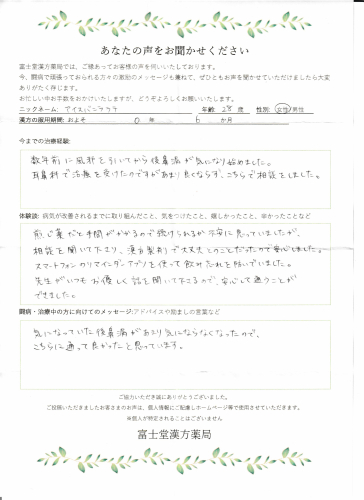 あなたの声をお聞かせください
富士堂漢方薬局では、ご縁あってお客様の声を伺いいたしております。
今、闘病で頑張っておられる方々の激励のメッセージも兼ねて、ぜひともお声を聞かせていただけましたら大変
ありがたく存じます。
お忙しい中お手数をおかけいたしますが、どうぞよろしくお願いいたします。
ニックネーム： アイスバニララテ 年齢 28 歳 性別： 女性・男性
漢方の服用期間：およそ 0 年 6 か月
今までの治療経験：
数年前に風邪を引いてから後鼻漏が気になり始めました。
耳鼻科で治療を受けたのですがあまり良くならず、こちらで相談をしました。
体験談：病気が改善されるまでに取り組んだこと、気をつけたこと、嬉しかったこと、辛かったことなど
煎じ薬だと手間がかかるので続けられるか不安に思っていましたが、
相談を聞いて下さり、漢方製剤で大丈夫とのことだったので安心しました。
スマートフォンのリマインダーアプリを使って飲み忘れを防いでいました。
先生がいつもお優しく話を聞いて下さるので、安心して通うことが
できました。
闘病・治療中の方に向けてのメッセージ:アドバイスや励ましの言葉など
気になっていた後鼻漏があまり気にならなくなったので、
こちらに通って良かったと思っています。
ご協力いただき誠にありがとうございました。
ご投稿いただきましたお客さまのお声は、個人情報にご配慮しホームページ等で使用させていただきます。
※個人が特定されることはございません
富士堂漢方薬局